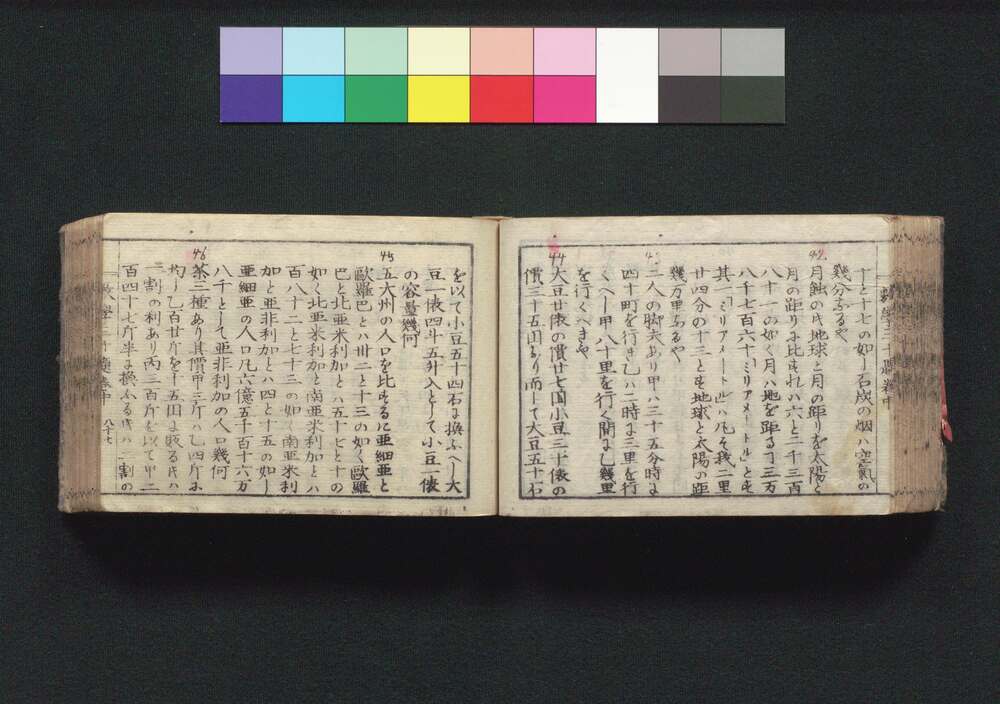 十と十七の如し石炭の烟ハ空氣の
幾分なるや
42.
月蝕の時地球と月の距りを太陽と
月の距りに比すれハ六と二千三百
八十一の如く月ハ地を距る丁三万
八千七百六十「ミリアメートル」とす
其一「ミリアメートル」ハ凡そ我二里
廿四分の十三とす地球と太陽の距
幾万里なるや
二人の脚夫あり甲ハ三十五分時に
四十町を行き乙ハ二時に三里を行
くべし甲八十里を行く間に乙幾里
を行くべきや
44
大豆廿俵の價廿七圓小豆三十俵の
價三十五圓なり而して大豆五十石
を以て小豆五十四石に換ふべし大
豆一俵四斗五升入として小豆一俵
の容量幾何
45
五大州の人口を比するに亜細亜と
歐羅巴とハ卅二と十三の如く歐羅
巴と北亜米利加とハ五十七と十の
如く北亜米利加と南亜米利加とハ
百八十二と七十三の如く南亜米利
加と亜非利加とハ四と十五の如し
亜細亜の人口凡六億五千百十六万
八千として亜非利加の人口幾何
46
茶三種あり其價甲三斤ハ乙四斤に
均し乙百廿斤を十五圓に販る時ハ
二割の利あり丙三百斤を以て甲二
百四十七斤半に換ふる時ハ一割の
八十七